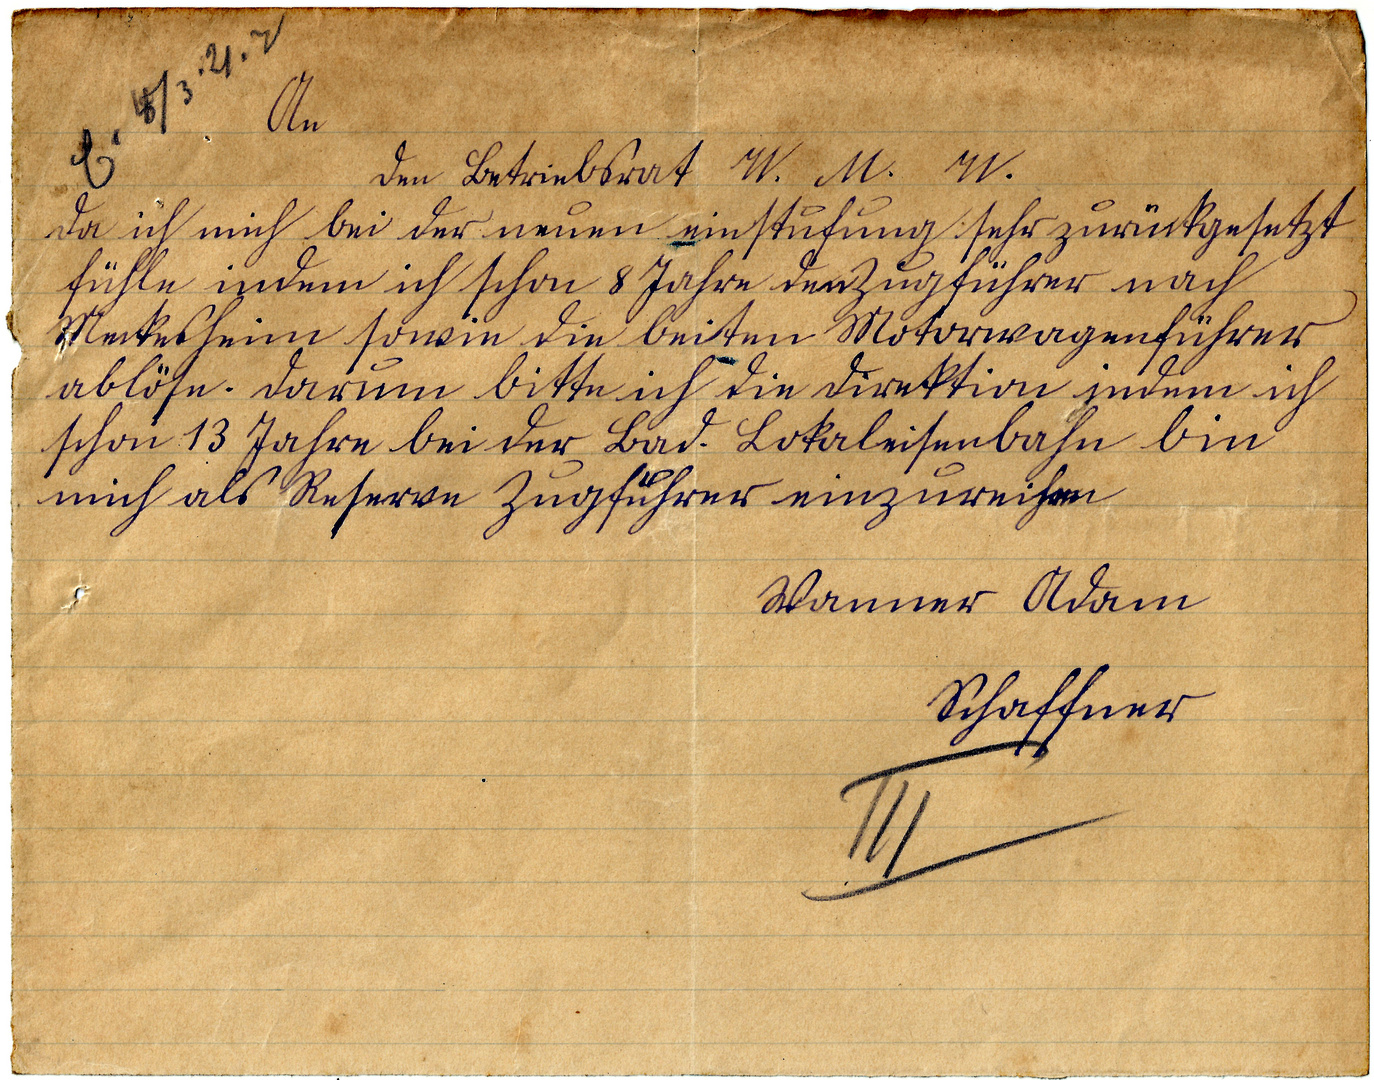 E. 18/3.21.
An
den Betriebsrat W. M. W.
da ich mich bei der neuen einstufung sehr zurückgesetzt
fühle indem ich schon 8 Jahre den Zugführer nach
Meckesheim sowie die beiten Motorwagenführer
ablöse. darum bitte ich die direktion indem ich
schon 13 Jahre bei der Bad. Lokaleisenbahn bin
mich als Reserve Zugführer einzureihen
Wanner Adam
Schaffner
III